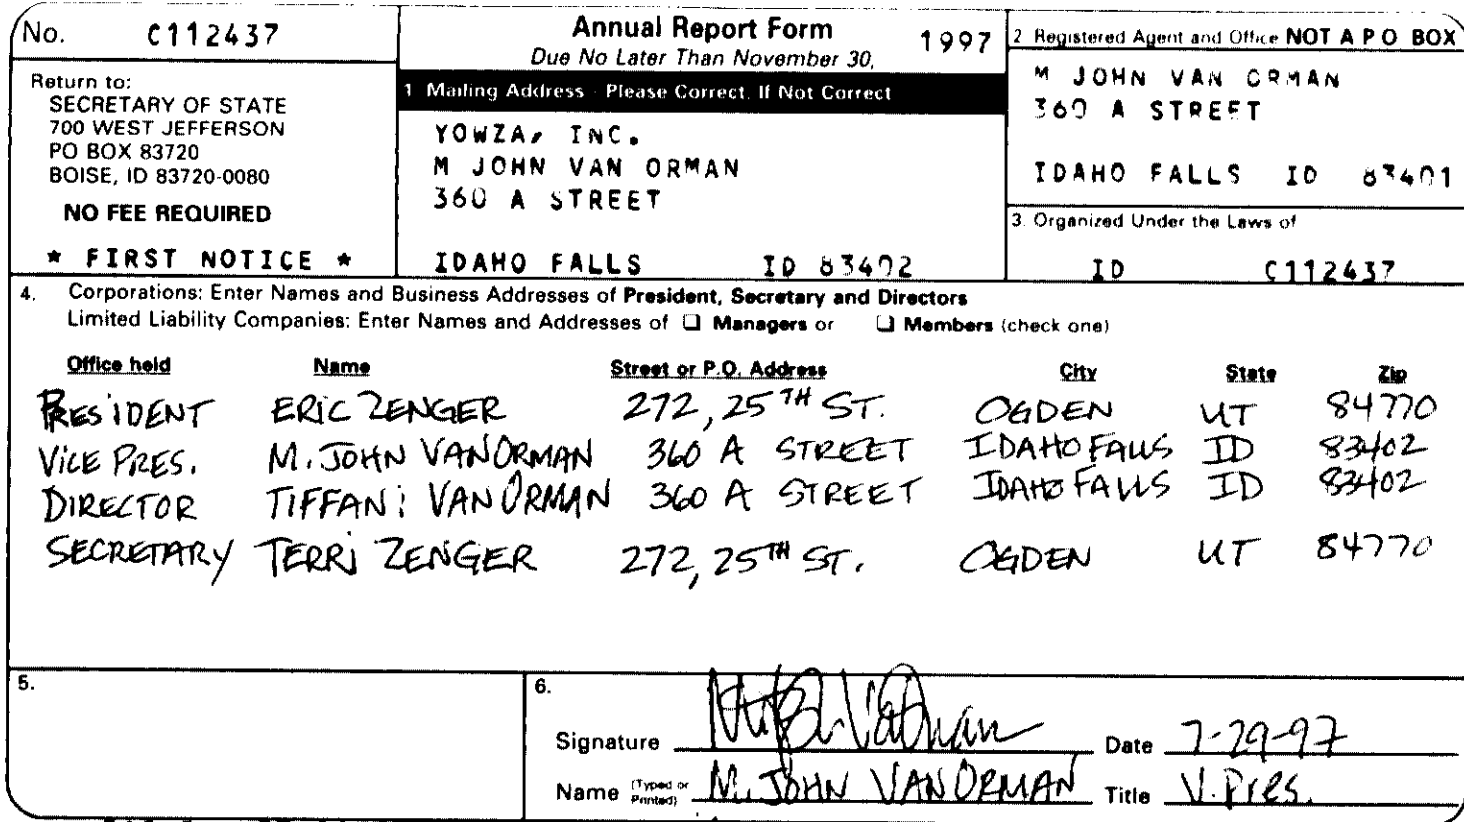 No. C112437
Return to:
SECRETARY OF STATE
700 WEST JEFFERSON
PO BOX 83720
BOISE, ID 83720-0080
NO FEE REQUIRED
* FIRST NOTICE *
Annual Report Form 1997
Due No Later Than November 30,
1 Mailing Address - Please Correct, If Not Correct
YOWZA, INC.
M JOHN VAN ORMAN
360 A STREET
IDAHO FALLS ID 83402
2 Registered Agent and Office NOT A P O BOX
M JOHN VAN ORMAN
360 A STREET
IDAHO FALLS ID 83401
3. Organized Under the Laws of
ID C112437
4. Corporations: Enter Names and Business Addresses of President, Secretary and Directors
Limited Liability Companies: Enter Names and Addresses of ❑ Managers or ❑ Members (check one)
Office held Name Street or P.O. Address City State Zip
PRESIDENT ERIC ZENGER 272, 25TH ST. OGDEN UT 84770
VICE PRES. M. JOHN VANORMAN 360 A STREET IDAHO FALLS ID 83402
DIRECTOR TIFFANI VANORMAN 360 A STREET IDAHO FALLS ID 83402
SECRETARY TERRI ZENGER 272, 25TH ST. OGDEN UT 84770
5.
6.
Signature Date 7-29-97
Name (Typed or Printed) M. JOHN VANORMAN Title V. Pres.